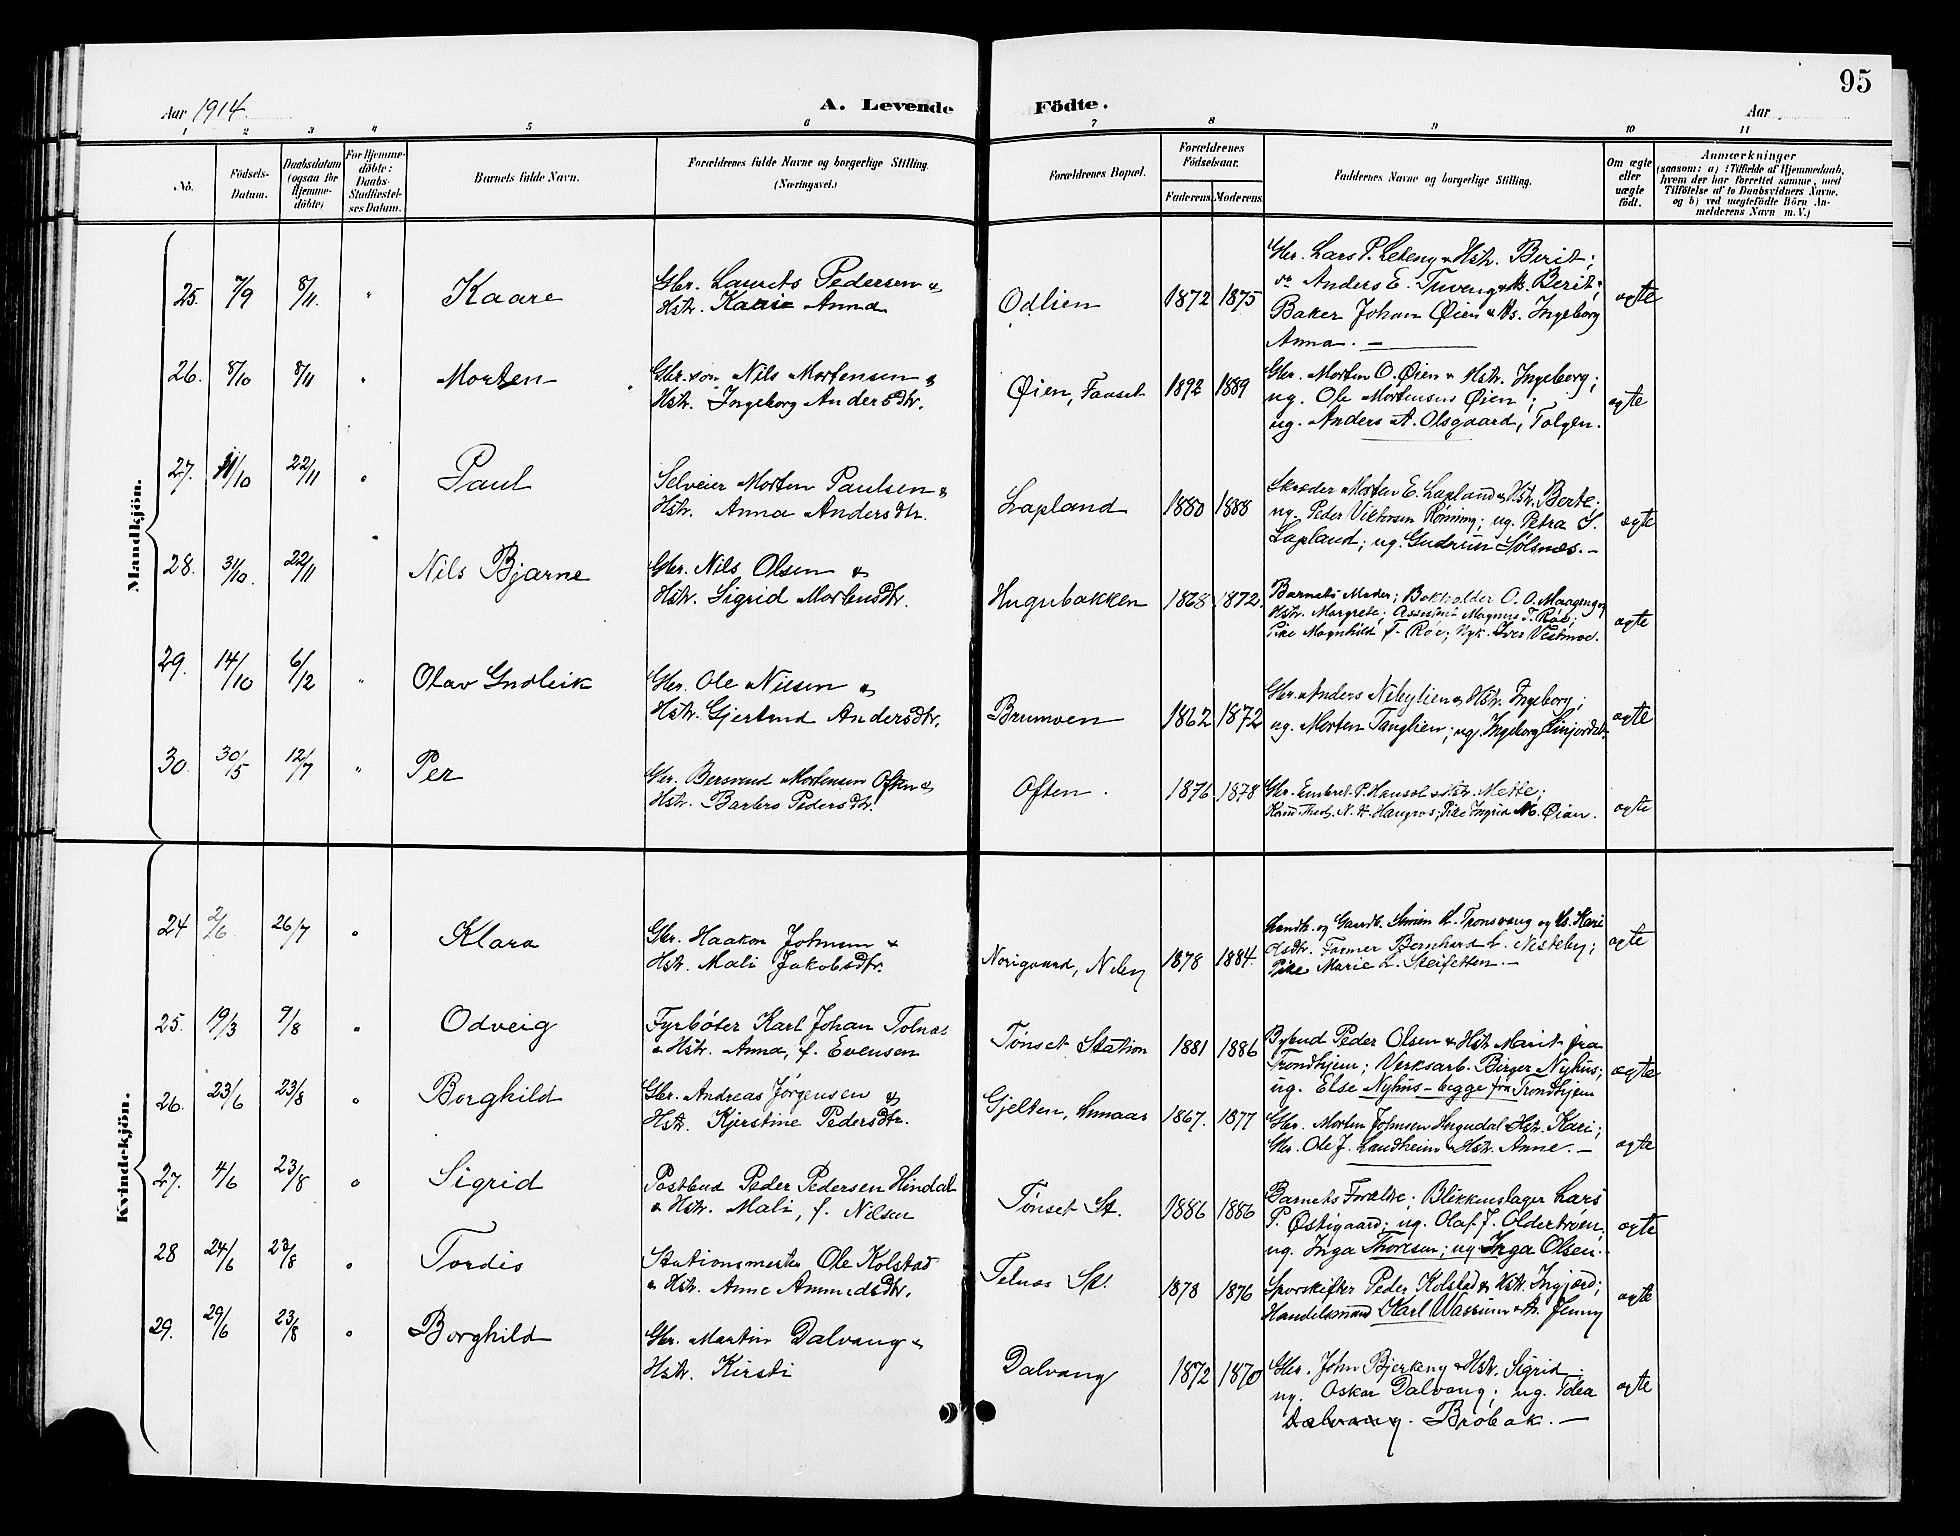 95
Aar 1914.
A. Levende Födte.
Aar
1 2 3 4 5 6 7 8 9 10 11
No.
Födsels-Datum.
Daabsdatum (ogsaa for Hjemme-döbte)
For Hjemme-döbte: Daabs-Stadfæstelses Datum.
Barnets fulde Navn.
Forældrenes fulde Navne og borgerlige Stilling. (Næringsvei.)
Forældrenes Bopæl.
Forældrenes Födselsaar.
Faderens. Moderens.
Faddernes Navne og borgerlige Stilling.
Om ægte eller uægte födt.
Anmærkninger
(saasom: a) i Tilfælde af Hjemmedaab,
hvem der har forrettet samme, med
Tilföielse af to Daabsvidners Navne,
og b) ved uægtefödte Börn An-
melderens Navn m. V.)
Mandkjön.
25. 7/9 8/11 " Kaare
Gbr. Laurits Pedersen &
Hstr. Karie Anna
Odlien 1872 1875
Gbr. Lars P. Leteng & Hstr. Berit;
Anders E. Tuveng & H. Berit;
Baker Johan Øien & Hs. Ingeborg
Anna. —
ægte
26. 8/10 8/11 " Morten
Gbr.søn Nils Mortensen &
Hstr. Ingeborg Andersdtr.
Øien, Fauset 1892 1889
Gbr. Morten O. Øien & Hstr. Ingeborg;
ug. Ole Mortensen Øien;
ug. Anders A. Olsgaard, Tolgen.
ægte
27. 11/10 22/11 " Paul
Selveier Morten Paulsen &
Hstr. Anna Andersdtr.
Lapland 1880 1888
Skræder Morten E. Lapland & Hstr. Berte;
ug. Peder Viktorsen Rønning; ug. Petra S.
Lapland; ug. Gudrun Sølsnes. —
ægte
28. 31/10. 22/11 " Nils Bjarne
Gbr. Nils Olsen &
Hstr. Sigrid Mortensdtr.
Hugubakken 1868 1872.
Barnets Moder; Bokholder O. O. Moageng &
Hstr. Margrete; Assistent Magnus T. Røe;
Pike Magnhild T. Røe; Iver Vestmoe.
ægte
29. 14/10 6/12 " Olav Gudleik
Gbr. Ole Nilsen &
Hstr. Gjertrud Andersdtr.
Brumoen 1862 1872
Gbr. Anders Nebylien & Hstr. Ingeborg;
ug. Morten Tanglien; ug. Ingeborg
ægte
30. 30/5 12/7 " Per
Gbr. Bersvend Mortensen Often &
Hstr. Barbro Pedersdtr.
Often. 1876 1878
Gbr. Embret P. Hansol & Hstr. Mette;
N. H. Haugros; Pike Ingrid M. Øian.
ægte
Kvindekjön.
24 2/6. 26/7 " Klara
Gbr. Haakon Johnsen &
Hstr. Mali Jakobsdtr.
Norigaard, Neby 1878 1884.
Landh. og Gaardb. Simen L. Tronsvang og Hs. Kari
Olsdtr. Farmer Bernhard L. Nesteby;
Pike Marie L. Steifetten. —
ægte
25. 19/3 9/8 " Odveig
Fyrbøter Karl Johan Tolnæs
& Hstr. Anna, f. Evensen
Tønset Station 1881 1886
Bybud Peder Olsen & Hstr. Marit fra
Trondhjem; Verksarb. Birger Nyhus;
ug. Else Nyhus — begge fra Trondhjem
ægte
26. 23/6 23/8 " Borghild
Gbr. Andreas Jørgensen &
Hstr. Kjerstine Pedersdtr.
Gjelten, Smaas 1867. 1877
Gbr. Morten Johnsen Hegndal & Hstr. Kari;
Gbr. Ole J. Landheim & Hstr. Anne. —
ægte
27. 4/6 23/8 " Sigrid
Postbud Peder Pedersen Hindal
& Hstr. Mali, f. Nilsen
Tønset St. 1886 1886
Barnets Forældre; Blikkenslager Lars
P. Østigaard; ug. Olaf J. Oldertrøen,
ug. Inga Thoresen; ug Inga Olsen.
ægte
28 24/6 23/8 " Tordis
Stationsmester Ole Kolstad
& Hstr. Anne Ammundsdtr.
Telnes St. 1878 1876
Sporskifter Peder Kolstad & Hstr. Ingjerd;
Handelsmand Karl Wassum & H. Jenny
ægte
29. 29/6 23/8 " Borghild
Gbr. Martin Dalvang &
Hstr. Kirsti
Dalvang 1872 1870
Gbr. John Bjerkeng & Hstr. Sigrid
ug. Oskar Dalvang; ug. Idea
Dalvang. Brobak. —
ægte